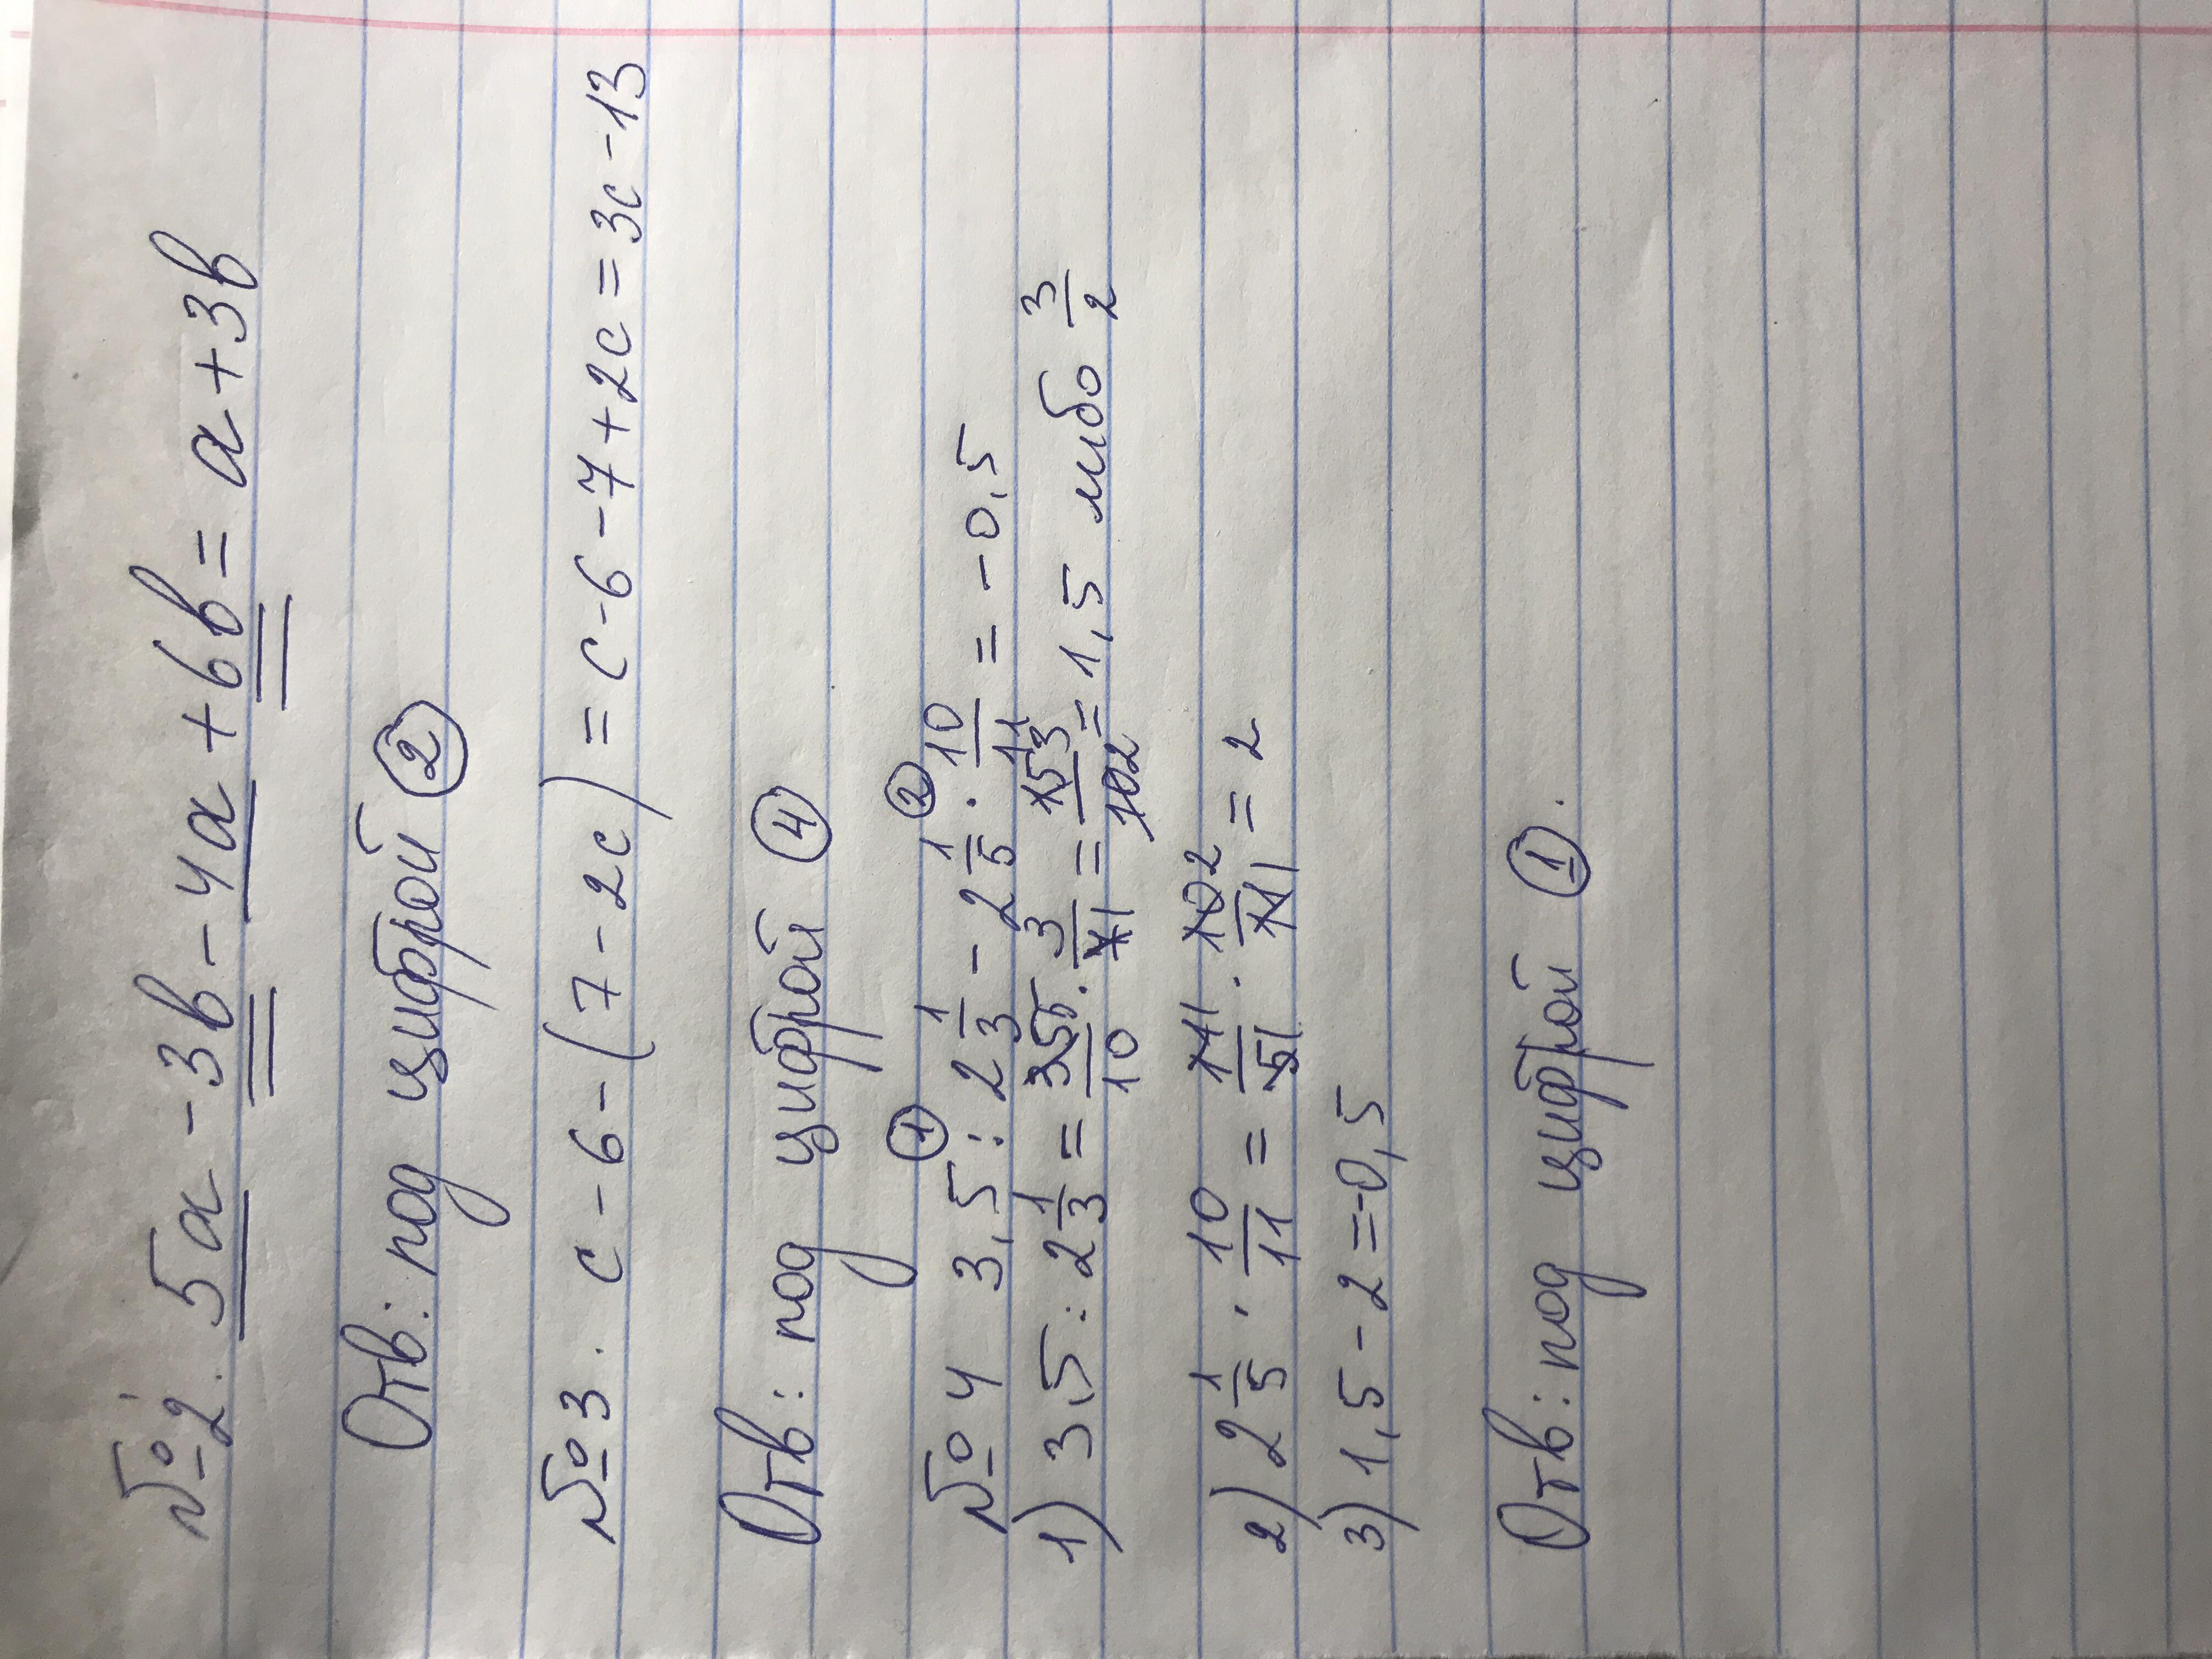 №2. 5a - 3b - 4a + 6b = a + 3b
Отв: под цифрой ②
№3. c - 6 - (7 - 2c) = c - 6 - 7 + 2c = 3c - 13
Отв: под цифрой ④
① ②
№4 3,5 : 2 1/3 - 2 1/5 · 10/11 = -0,5
1) 3,5 : 2 1/3 = 35 5/10 · 3/7 1 = 15 3/10 2 = 1,5 либо 3/2
2) 2 1/5 · 10/11 = 11 1/5 1 · 10 2/11 1 = 2
3) 1,5 - 2 = -0,5
Отв: под цифрой ①.